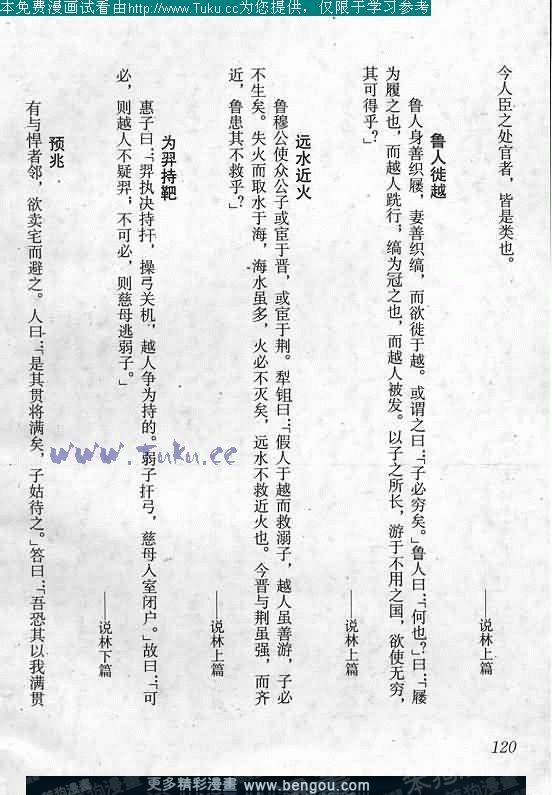 本免费漫画试看由http://www.Tuku.cc为您提供，仅限于学习参考
今人臣之处官者，皆是类也。
——说林上篇
鲁人徙越
鲁人身善织屦，妻善织缟，而欲徙于越。或谓之曰：「子必穷矣。」鲁人曰：「何也？」曰：「屦
为履之也，而越人跣行；缟为冠之也，而越人被发。以子之所长，游于不用之国，欲使无穷，
其可得乎？」
——说林上篇
远水近火
鲁穆公使众公子或宦于晋，或宦于荆。犁钼曰：「假人于越而救溺子，越人虽善游，子必
不生矣。失火而取水于海，海水虽多，火必不灭矣，远水不救近火也。今晋与荆虽强，而齐
近，鲁患其不救乎？」
——说林上篇
为羿持靶
惠子曰：「羿执决持扞，操弓关机，越人争为持的。弱子扞弓，慈母入室闭户。」故曰：「可
必，则越人不疑羿；不可必，则慈母逃弱子。」
——说林下篇
预兆
有与悍者邻，欲卖宅而避之。人曰：「是其贯将满矣，子姑待之。」答曰：「吾恐其以我满贯
www.Tuku.cc
120
笨狗漫畫
更多精彩漫畫 www.bengou.com